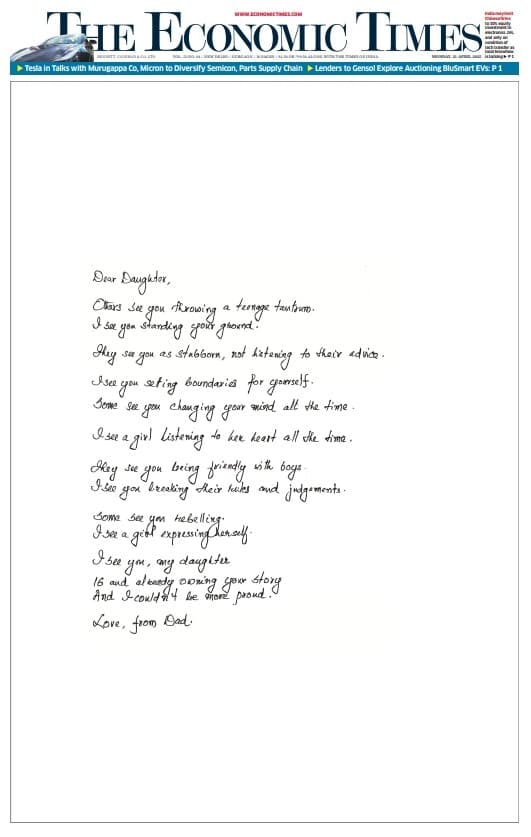 WWW.ECONOMICTIMES.COM
THE ECONOMIC TIMES
BENNETT, COLEMAN & CO. LTD.
▶ Tesla in Talks with Murugappa Co, Micron to Diversify Semicon, Parts Supply Chain ▶ Lenders to Gensol Explore Auctioning BluSmart EVs: P 1
Dear Daughter,
Others see you throwing a teenage tantrum.
I see you standing your ground.
They see you as stubborn, not listening to their advice.
I see you seting boundaries for yourself.
Some see you changing your mind all the time.
I see a girl listening to her heart all the time.
They see you being friendly with boys.
I see you breaking their rules and judgements.
Some see you rebelling.
I see a girl expressing herself.
I see you, my daughter
16 and already owning your story
And I couldn't be more proud.
Love, from Dad.